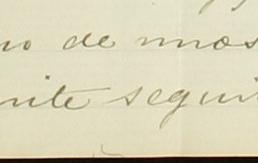 no de unos
nite seguir